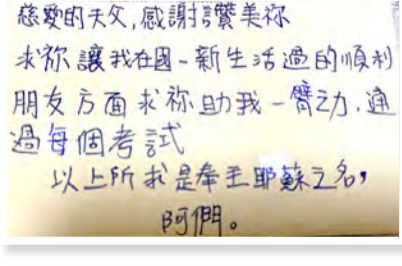 慈愛的天父,感謝讚美祢
求祢讓我在國一新生活過的順利
朋友方面求祢助我一臂之力,通
過每個考試
以上所求是奉主耶穌之名,
阿們。